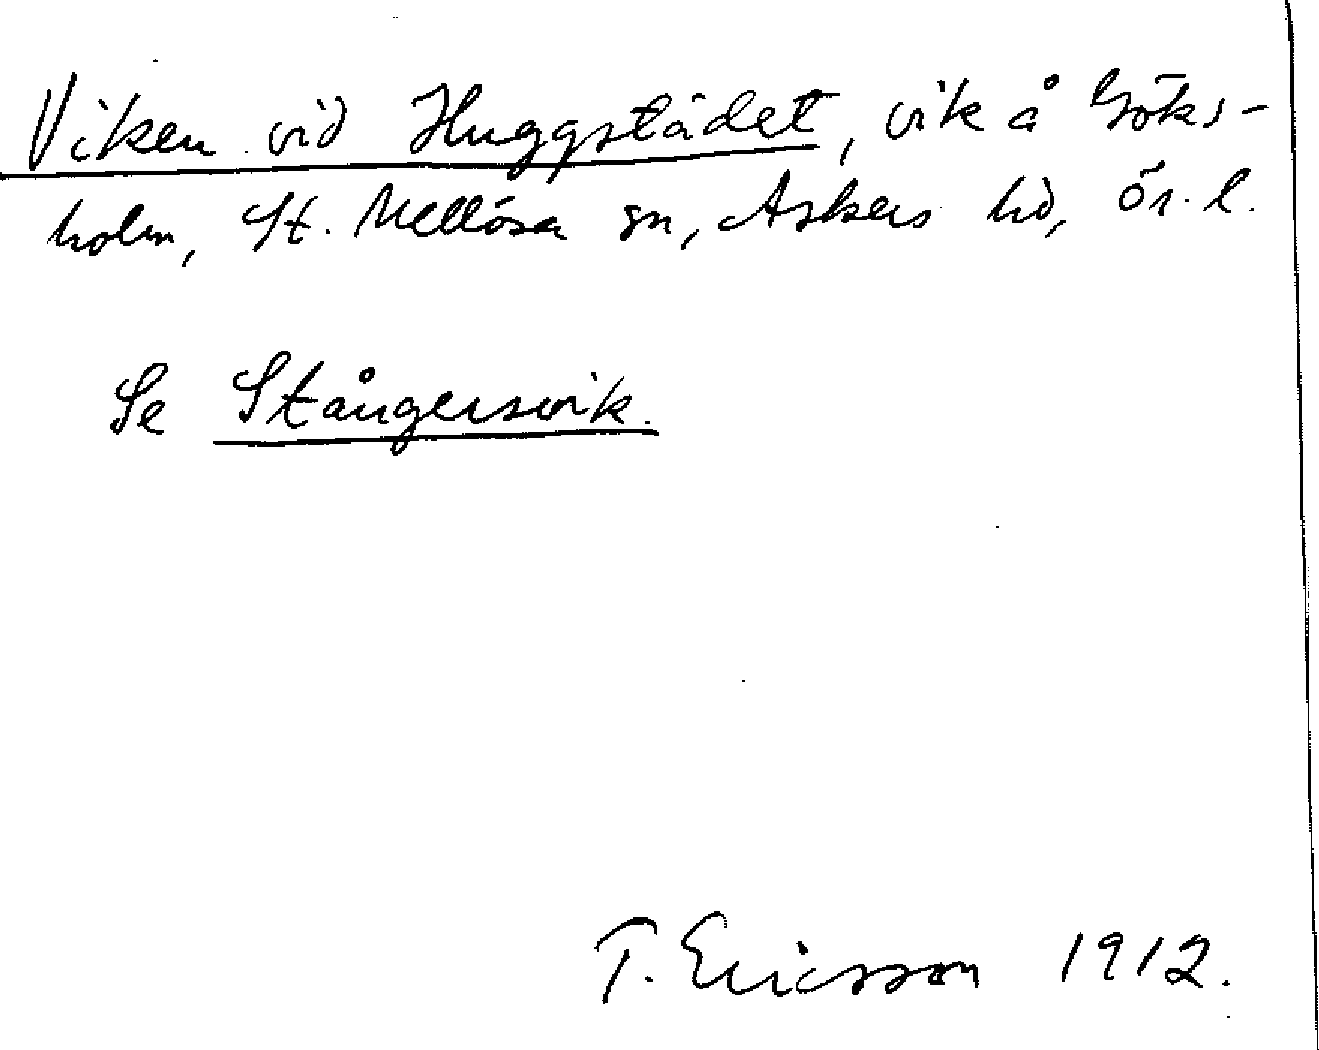 Viken vid Huggstädet, vik å Göks-
holm, St. Mellösa sn, Askers hd, Ör. l.
Se Stångersvik.
T. Ericsson 1912.